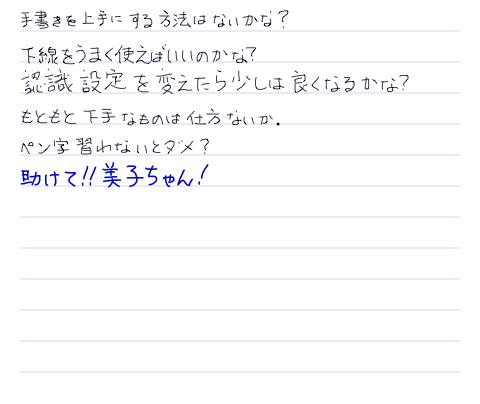 手書きを上手にする方法はないかな?
下線をうまく使えばいいのかな?
認識設定を変えたら少しは良くなるかな?
もともと下手なものは仕方ないか.
ペン字習わないとダメ?
助けて!!美子ちゃん!